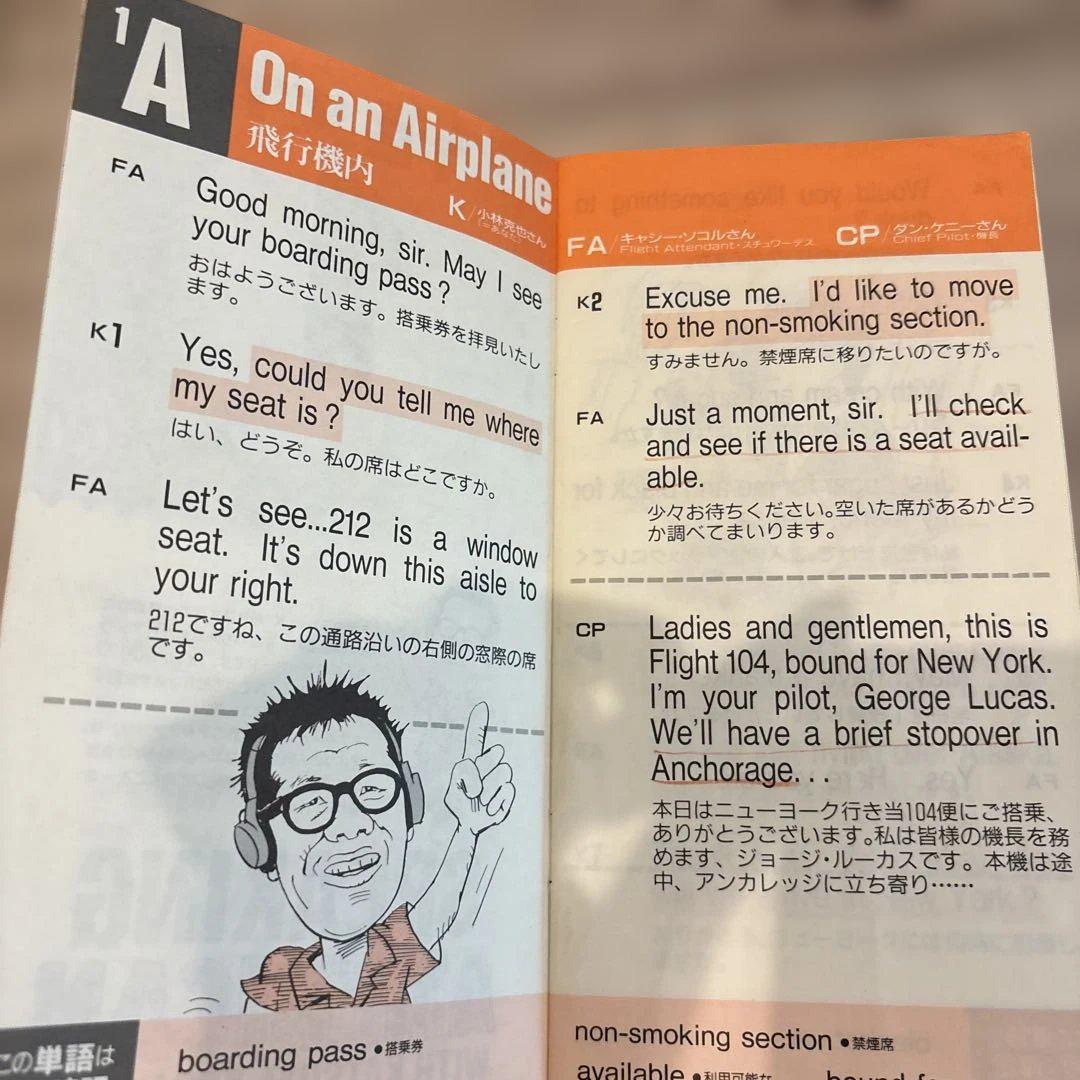 1
A
On an Airplane
飛行機内
K/小林克也さん
(=あなた)
FA
Good morning, sir. May I see
your boarding pass?
おはようございます。搭乗券を拝見いたし
ます。
K1
Yes, could you tell me where
my seat is?
はい、どうぞ。私の席はどこですか。
FA
Let's see...212 is a window
seat. It's down this aisle to
your right.
212ですね、この通路沿いの右側の窓際の席
です。
この単語は
boarding pass ●搭乗券
FA/キャシー・ソコルさん
Flight Attendant・スチュワーデス
CP/ダン・ケニーさん
Chief Pilot・機長
K2
Excuse me. I'd like to move
to the non-smoking section.
すみません。禁煙席に移りたいのですが。
FA
Just a moment, sir. I'll check
and see if there is a seat avail-
able.
少々お待ちください。空いた席があるかどう
か調べてまいります。
CP
Ladies and gentlemen, this is
Flight 104, bound for New York.
I'm your pilot, George Lucas.
We'll have a brief stopover in
Anchorage...
本日はニューヨーク行き当104便にご搭乗、
ありがとうございます。私は皆様の機長を務
めます、ジョージ・ルーカスです。本機は途
中、アンカレッジに立ち寄り……
non-smoking section ●禁煙席
available ●利用可能な